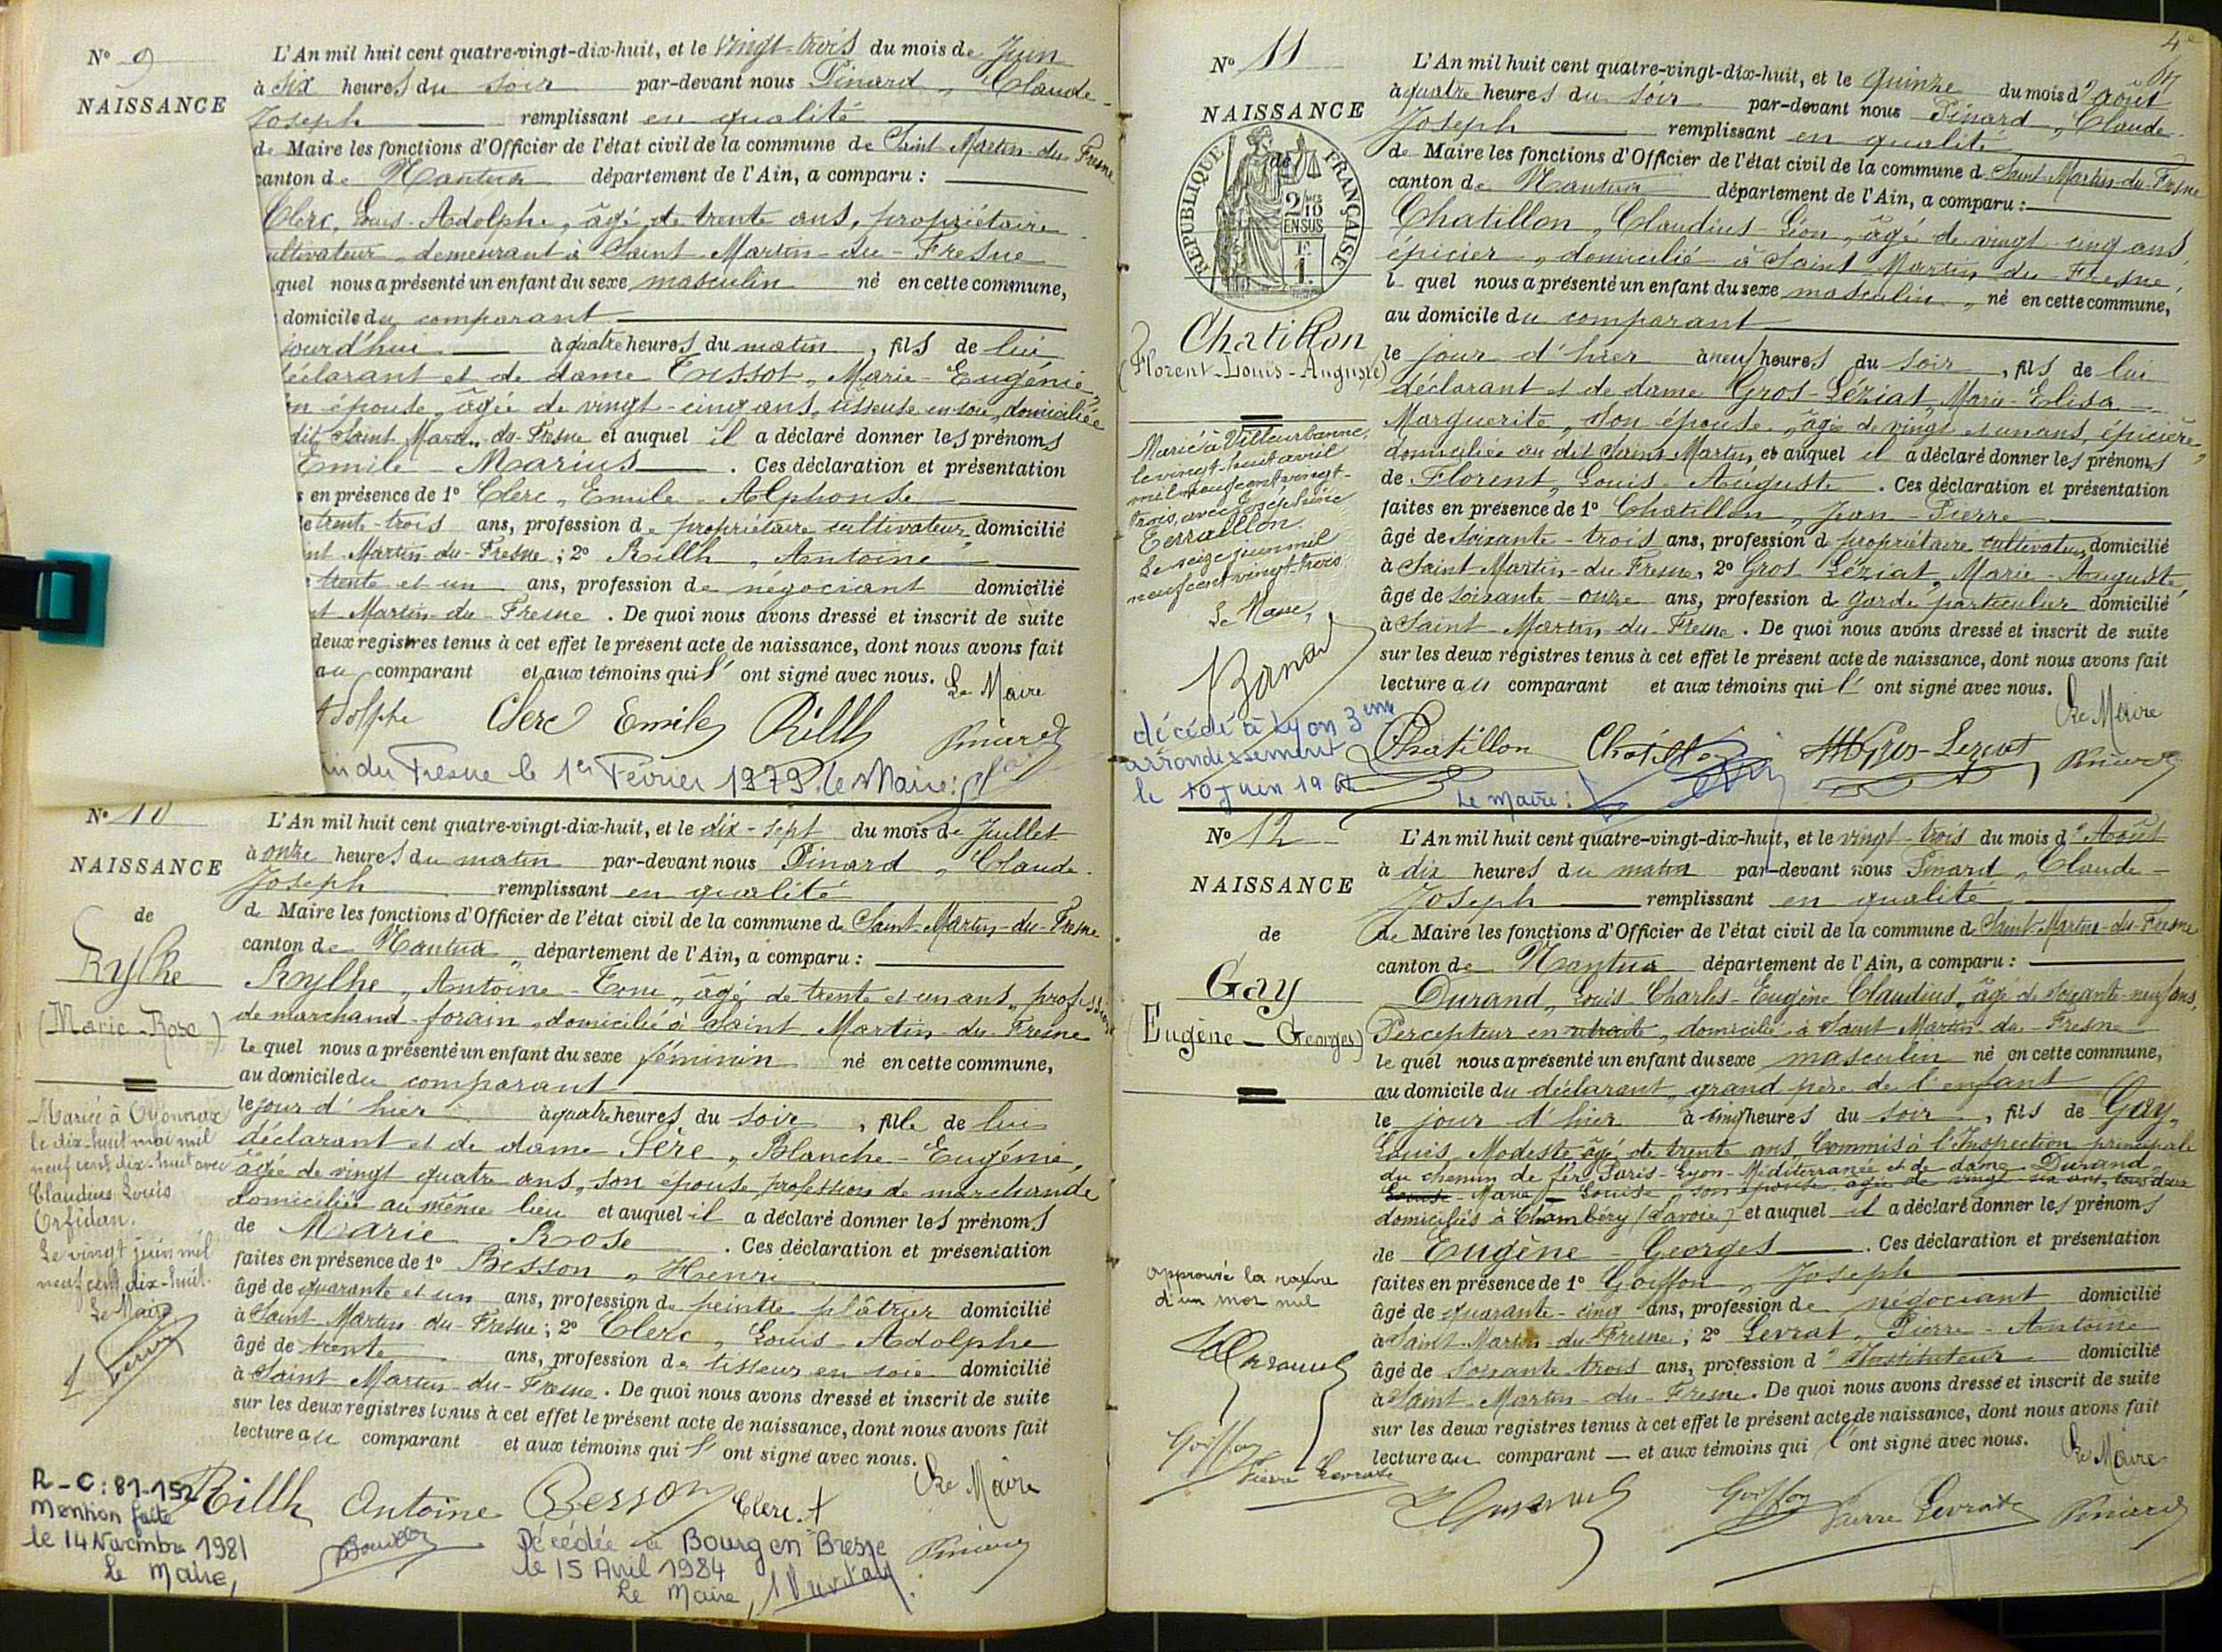 N° 9
NAISSANCE
L'An mil huit cent quatre-vingt-dix-huit, et le vingt-trois du mois de Juin
à six heures du soir par-devant nous Pinard, Claude-
Joseph remplissant en qualité
de Maire les fonctions d'Officier de l'état civil de la commune de Saint-Martin-du-Fresne
canton de Nantua département de l'Ain, a comparu :
Clerc, Louis-Adolphe, âgé de trente ans, propriétaire
ultivateur, demeurant à Saint Martin-du-Fresne
quel nous a présenté un enfant du sexe masculin né en cette commune,
domicile du comparant
jourd'hui à quatre heures du matin, fils de lui
déclarant et de dame Tissot, Marie-Eugénie,
on épouse, âgée de vingt-cinq ans, tisseuse en soie, domiciliée
dit Saint Martin du-Fresne et auquel il a déclaré donner les prénoms
Emile-Marius. Ces déclaration et présentation
s en présence de 1° Clerc, Emile-Alphonse
de trente-trois ans, profession de propriétaire cultivateur domicilié
int Martin-du-Fresne ; 2° Rillh, Antoine
trente et un ans, profession de négociant domicilié
nt Martin-du-Fresne. De quoi nous avons dressé et inscrit de suite
deux registres tenus à cet effet le présent acte de naissance, dont nous avons fait
au comparant et aux témoins qui l'ont signé avec nous. Le Maire
Adolphe Clerc Emile Rillh Pinard
in du Fresne le 1er Février 1979. le Maire:
N° 10
NAISSANCE
de
Rylhe
(Marie-Rose)
Mariée à Oyonnax
le dix-huit mai mil
neuf cent dix-huit avec
Claudius Louis
Orfidan.
Le vingt juin mil
neuf cent dix-huit.
Le Maire
L'An mil huit cent quatre-vingt-dix-huit, et le dix-sept du mois de Juillet
à onze heures du matin par-devant nous Pinard, Claude-
Joseph remplissant en qualité
de Maire les fonctions d'Officier de l'état civil de la commune de Saint-Martin-du-Fresne
canton de Nantua, département de l'Ain, a comparu :
Rylhe, Antoine-Tone, âgé de trente et un ans, profession
de marchand-forain, domicilié à Saint Martin-du-Fresne
le quel nous a présenté un enfant du sexe féminin né en cette commune,
au domicile du comparant
le jour d'hier à quatre heures du soir, fille de lui
déclarant et de dame Sère, Blanche-Eugénie,
âgée de vingt quatre ans, son épouse, profession de marchande
domiciliée au même lieu et auquel il a déclaré donner les prénoms
de Marie Rose. Ces déclaration et présentation
faites en présence de 1° Besson, Henri
âgé de quarante et un ans, profession de peintre plâtrier domicilié
à Saint Martin-du-Fresne ; 2° Clerc, Louis-Adolphe
âgé de trente ans, profession de tisseur en soie domicilié
à Saint Martin-du-Fresne. De quoi nous avons dressé et inscrit de suite
sur les deux registres tenus à cet effet le présent acte de naissance, dont nous avons fait
lecture au comparant et aux témoins qui l'ont signé avec nous.
Le Maire
Rillh Antoine Besson Clerc. A Pinard
R-C: 81-152
Mention faite
le 14 Novembre 1981
Le Maire,
Décédée à Bourg en Bresse
le 15 Avril 1984
Le Maire,
4e
N° 11
NAISSANCE
de
REPUBLIQUE FRANÇAISE
2/10
EN SUS
Chatillon
(Florent-Louis-Auguste)
Marié à Villeurbanne,
le vingt-huit avril
mil neuf cent vingt-
trois, avec Joséphine
Terraillon.
Le seize juin mil
neuf cent vingt-trois.
Le Maire,
décédé à Lyon 3eme
arrondissement
le 10 Juin 19
L'An mil huit cent quatre-vingt-dix-huit, et le quinze du mois d'août
à quatre heures du soir par-devant nous Pinard, Claude-
Joseph remplissant en qualité
de Maire les fonctions d'Officier de l'état civil de la commune de Saint-Martin-du-Fresne
canton de Nantua département de l'Ain, a comparu :
Chatillon, Claudius-Léon, âgé de vingt-cinq ans,
épicier, domicilié à Saint Martin-du-Fresne,
le quel nous a présenté un enfant du sexe masculin, né en cette commune,
au domicile du comparant
le jour d'hier à neuf heures du soir, fils de lui
déclarant et de dame Gros-Léziat, Marie-Elisa-
Marguerite, son épouse, âgée de vingt et un ans, épicière,
domiciliée au dit Saint-Martin, et auquel il a déclaré donner les prénoms
de Florent, Louis-Auguste. Ces déclaration et présentation
faites en présence de 1° Chatillon, Jean-Pierre
âgé de soixante-trois ans, profession de propriétaire cultivateur domicilié
à Saint-Martin-du-Fresne, 2° Gros Léziat, Marie-Auguste,
âgé de soixante-onze ans, profession de garde particulier domicilié
à Saint-Martin-du-Fresne. De quoi nous avons dressé et inscrit de suite
sur les deux registres tenus à cet effet le présent acte de naissance, dont nous avons fait
lecture au comparant et aux témoins qui l'ont signé avec nous.
Le Maire
Chatillon Chatillon Gros-Leziat Pinard
Le maire:
N° 12
NAISSANCE
de
Gay
(Eugène-Georges)
approuvé la rature
d'un mot nul
Goiffon
Pierre Levrat
L'An mil huit cent quatre-vingt-dix-huit, et le vingt-trois du mois d'Août
à dix heures du matin par-devant nous Pinard, Claude-
Joseph remplissant en qualité
de Maire les fonctions d'Officier de l'état civil de la commune de Saint-Martin-du-Fresne
canton de Nantua département de l'Ain, a comparu :
Durand, Louis-Charles-Eugène Claudius, âgé de soixante-neuf ans,
Percepteur en retraite, domicilié à Saint Martin-du-Fresne
le quel nous a présenté un enfant du sexe masculin né en cette commune,
au domicile du déclarant, grand père de l'enfant
le jour d'hier à cinq heures du soir, fils de Gay,
Louis, Modeste âgé de trente ans, Commis à l'Inspection principale
du chemin de fer Paris-Lyon-Méditerranée et de dame Durand,
Louise-Marie-Louise, son épouse âgée de vingt six ans, tous deux
domiciliés à Chambéry (Savoie) et auquel il a déclaré donner les prénoms
de Eugène-Georges. Ces déclaration et présentation
faites en présence de 1° Goiffon, Joseph
âgé de quarante-cinq ans, profession de négociant domicilié
à Saint-Martin-du-Fresne ; 2° Levrat, Pierre-Antoine
âgé de soixante trois ans, profession d'Instituteur domicilié
à Saint-Martin-du-Fresne. De quoi nous avons dressé et inscrit de suite
sur les deux registres tenus à cet effet le présent acte de naissance, dont nous avons fait
lecture au comparant et aux témoins qui l'ont signé avec nous.
Le Maire
Goiffon Pierre Levrat Pinard